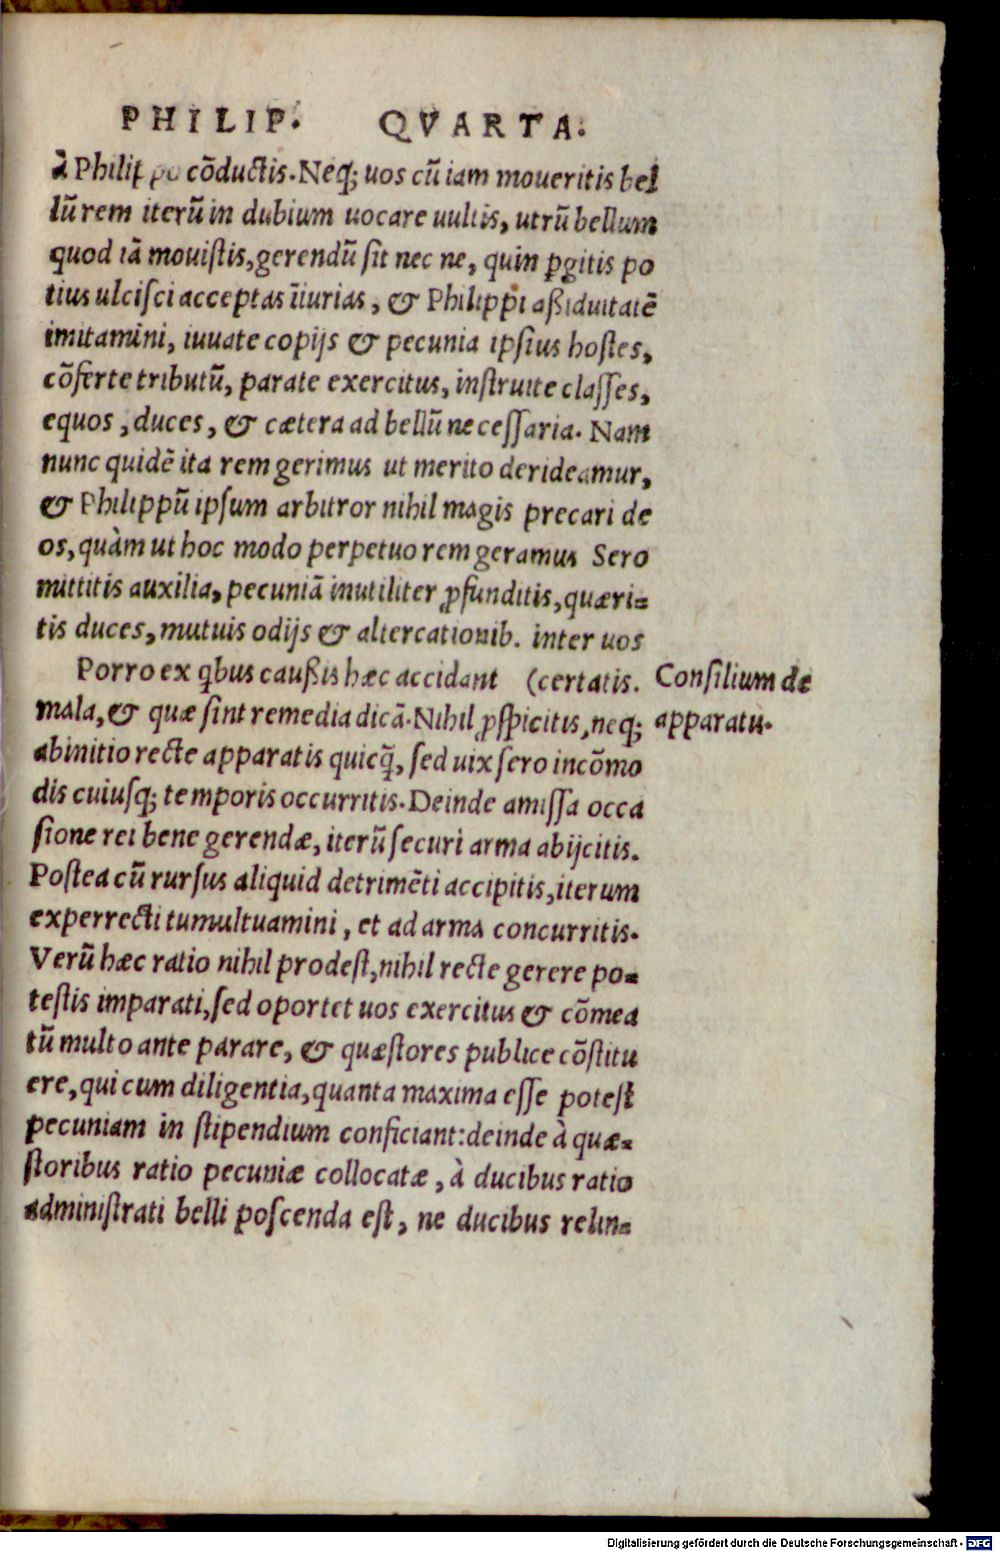 PHILIP. QVARTA.
à Philippo cōductis. Neq; uos cū iam moueritis bel
lū rem iterū in dubium uocare uultis, utrū bellum
quod iā mouistis, gerendū sit nec ne, quin ꝑgitis po
tius ulcisci acceptas iīiurias, & Philippi aßiduitatē
imitamini, iuuate copijs & pecunia ipsius hostes,
cōferte tributū, parate exercitus, instruite classes,
equos, duces, & cætera ad bellū necessaria. Nam
nunc quidē ita rem gerimus ut merito derideamur,
& Philippū ipsum arbitror nihil magis precari de
os, quàm ut hoc modo perpetuo rem geramus Sero
mittitis auxilia, pecuniā inutiliter ꝓfunditis, quæri=
tis duces, mutuis odijs & altercationib. inter uos
Porro ex qbus caußis hæc accidant (certatis.
mala, & quæ sint remedia dicā. Nihil ꝓspicitis, neq;
abinitio recte apparatis quicq̃, sed uix sero incōmo
dis cuiusq; temporis occurritis. Deinde amissa occa
sione rei bene gerendæ, iterū securi arma abijcitis.
Postea cū rursus aliquid detrimēti accipitis, iterum
experrecti tumultuamini, et ad arma concurritis.
Verū hæc ratio nihil prodest, nihil recte gerere po=
testis imparati, sed oportet uos exercitus & cōmea
tū multo ante parare, & quæstores publice cōstitu
ere, qui cum diligentia, quanta maxima esse potest
pecuniam in stipendium conficiant: deinde à quæ=
storibus ratio pecuniæ collocatæ, à ducibus ratio
administrati belli poscenda est, ne ducibus relin=
Consilium de
apparatu.
Digitalisierung gefördert durch die Deutsche Forschungsgemeinschaft - DFG